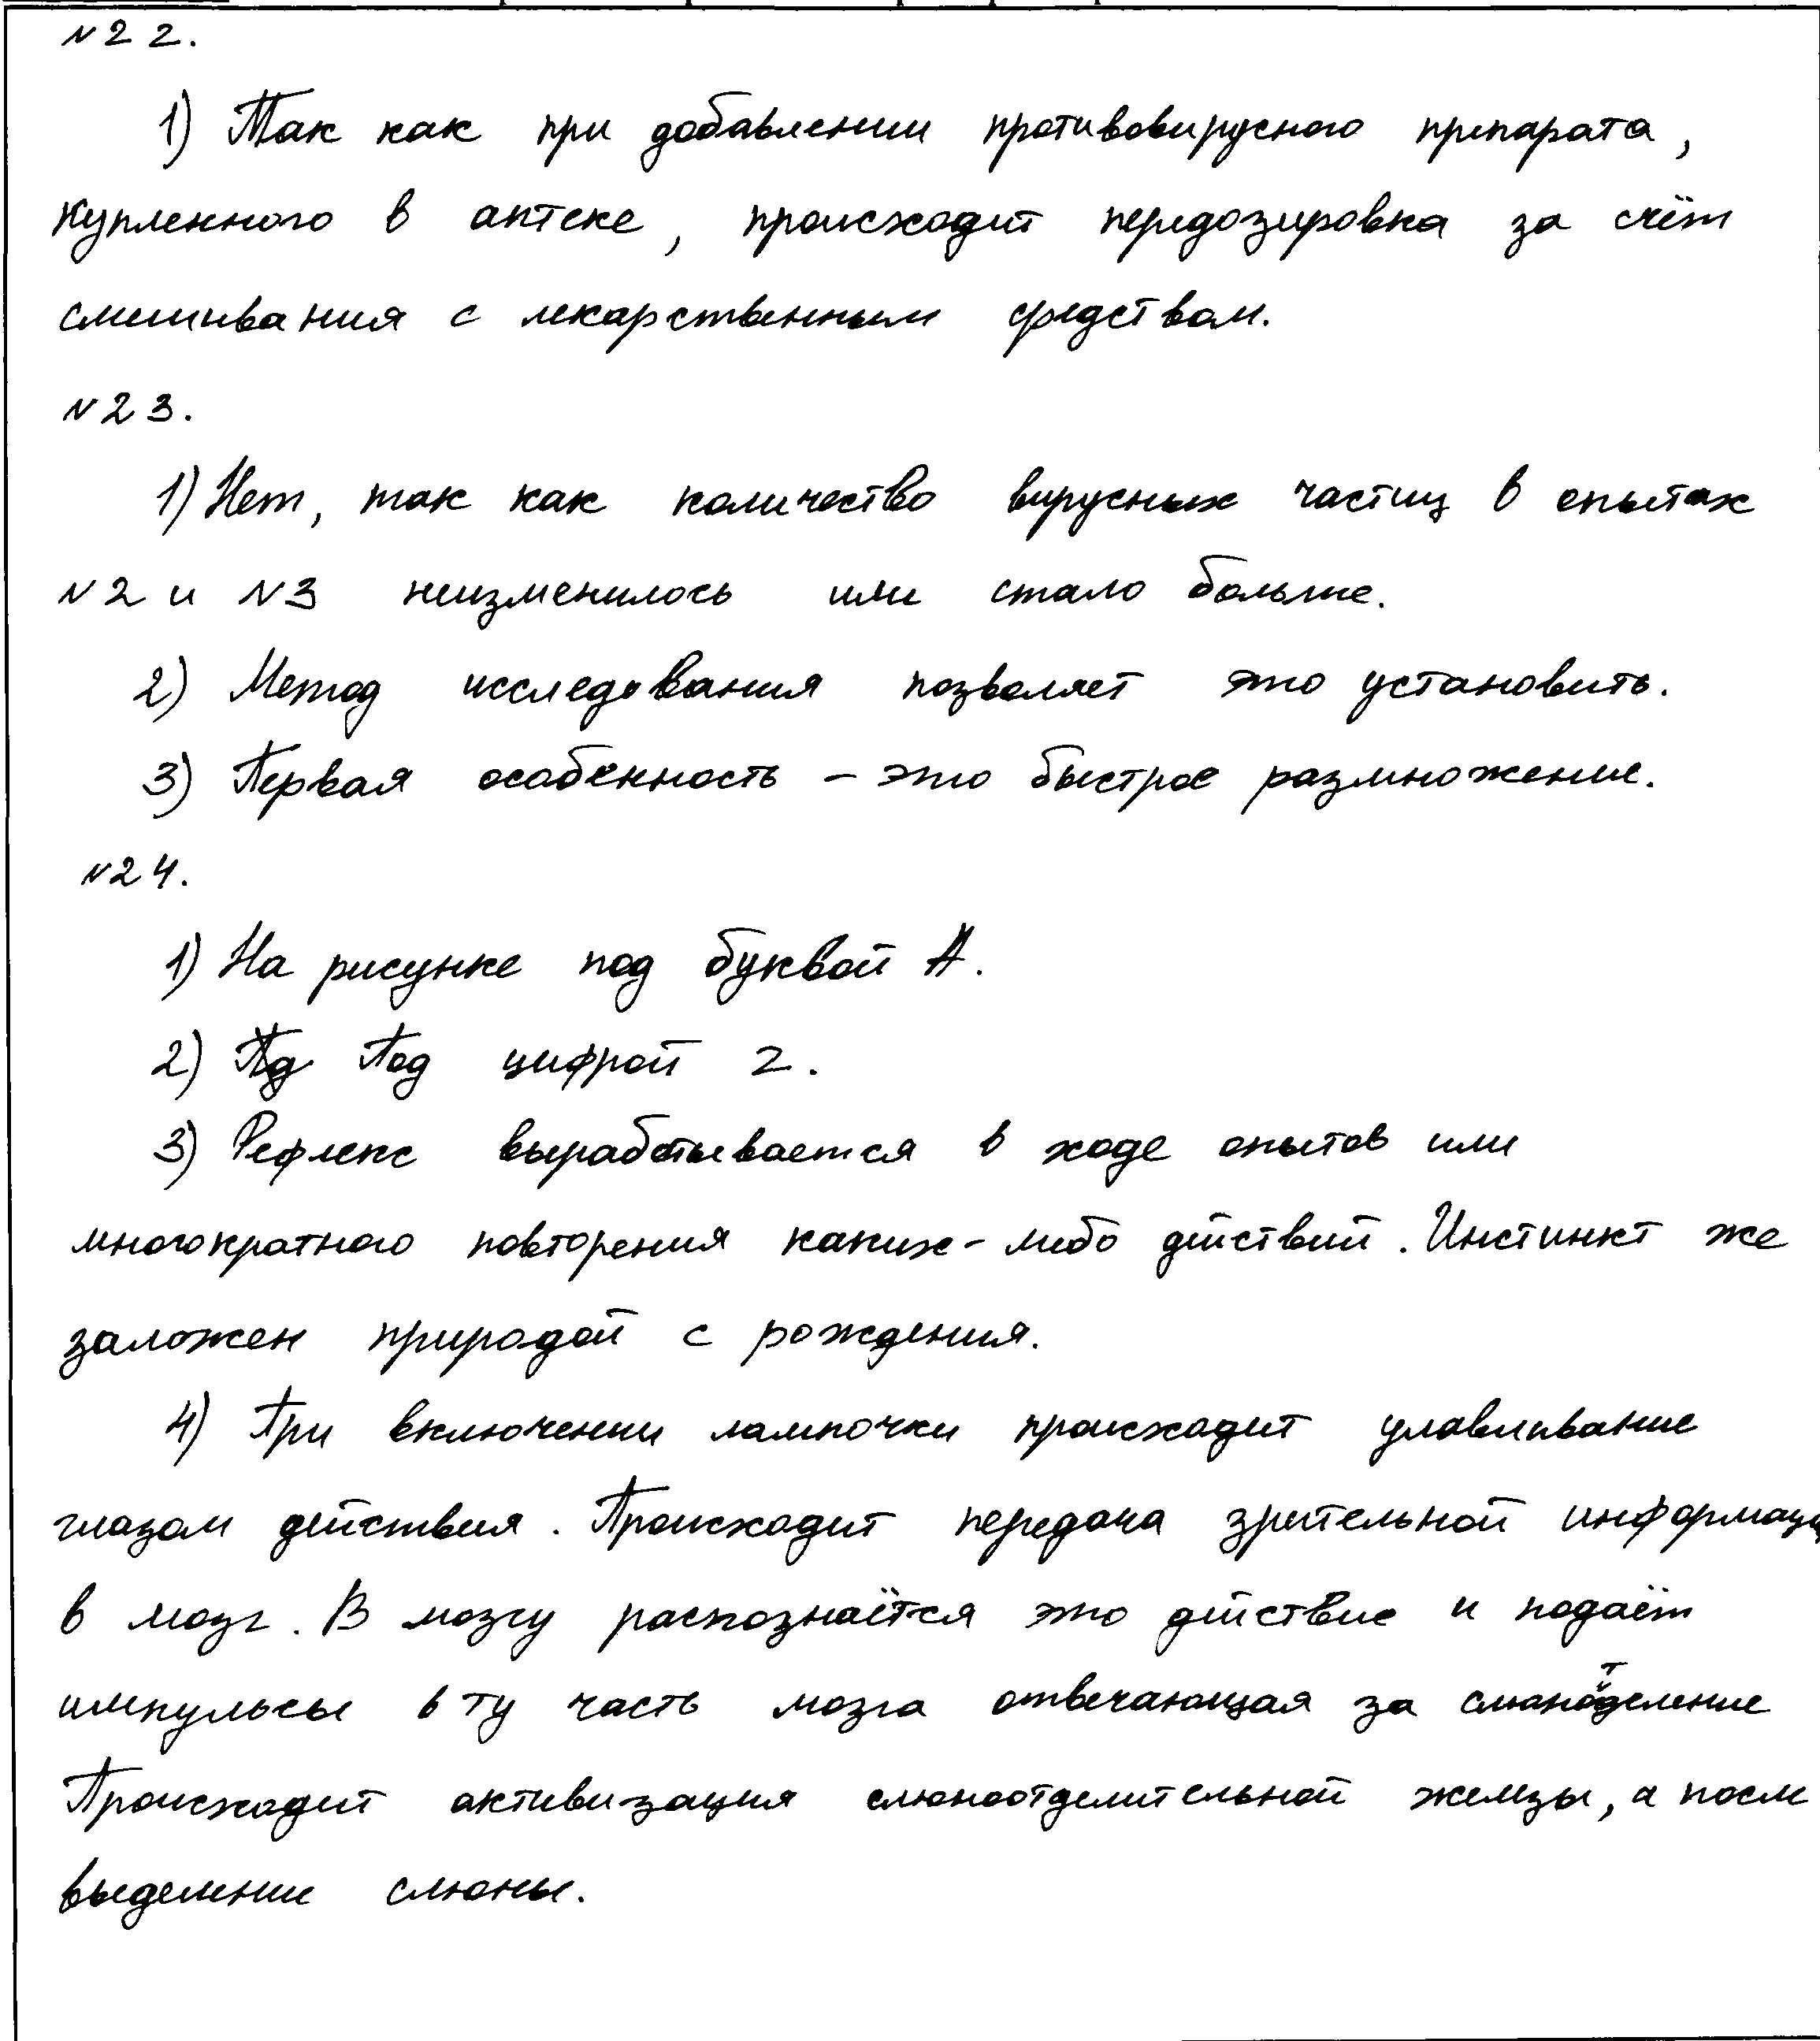 №22.
1) Так как при добавлении противовирусного препарата,
купленного в аптеке, происходит передозировка за счёт
смешивания с лекарственным средством.
№23.
1) Нет, так как количество вирусных частиц в опытах
№2 и №3 неизменилось или стало больше.
2) Метод исследования позволяет это установить.
3) Первая особенность – это быстрое размножение.
№24.
1) На рисунке под буквой А.
2) Под цифрой 2.
3) Рефлекс вырабатывается в ходе опытов или
многократного повторения каких-либо действий. Инстинкт же
заложен природой с рождения.
4) При включении лампочки происходит улавливание
глазом действия. Происходит передача зрительной информаци
в мозг. В мозгу распознаётся это действие и подаёт
импульсы в ту часть мозга отвечающая за слюноотделение
Происходит активизация слюноотделительной железы, а после
выделение слюны.